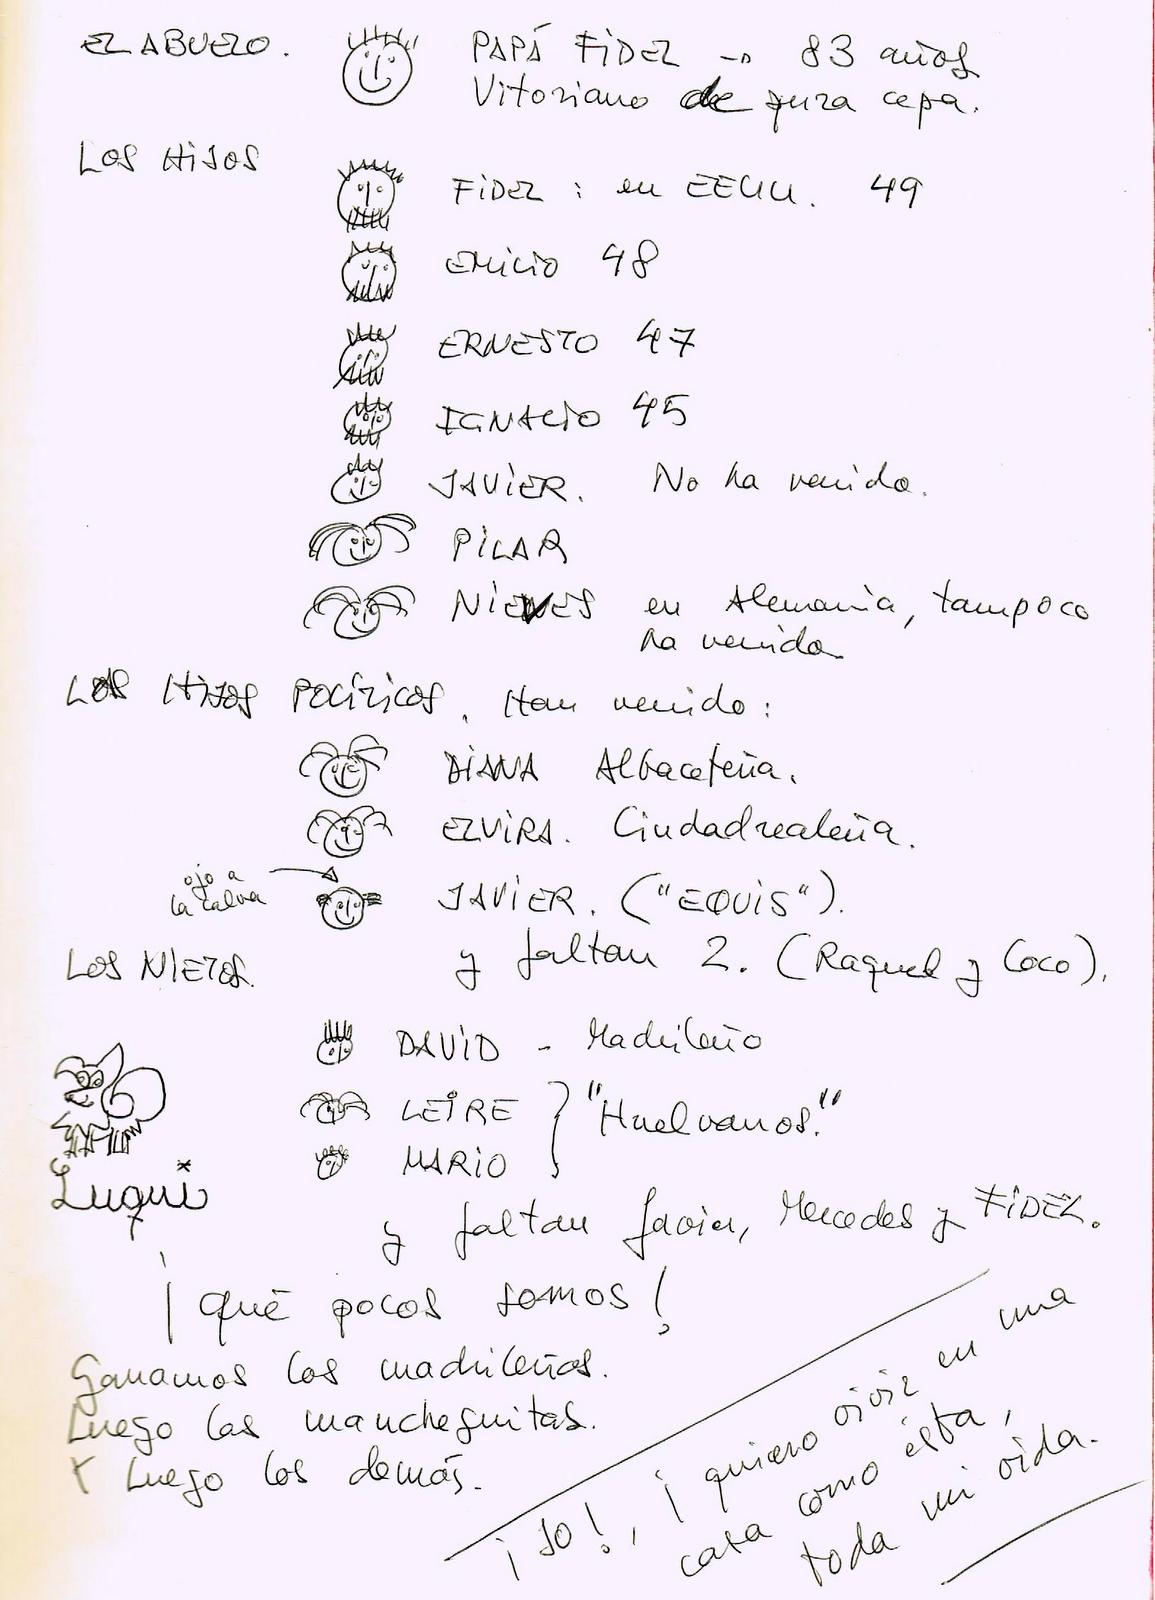 EL ABUELO. PAPÁ FIDEL → 83 años
Vitoriano de pura cepa.
LOS HIJOS
FIDEL : en EEUU. 49
EMILIO 48
ERNESTO 47
IGNACIO 45
JAVIER. No ha venido.
PILAR
NIEVES en Alemania, tampoco
ha venido.
LOS HIJOS POLÍTICOS. Han venido:
DIANA Albaceteña.
ELVIRA. Ciudadrealeña.
ojo a
la calva
JAVIER. ("EQUIS").
y faltan 2. (Raquel y Coco).
LOS NIETOS.
DAVID - Madrileño
LEIRE
MARIO
"Huelvanos."
Luqui
y faltan Javier, Mercedes y FIDEL.
¡ qué pocos somos !
Ganamos los madrileños.
Luego las mancheguitas.
Y luego los demás.
¡ Jo ! , ¡ quiero vivir en una
casa como ésta,
toda mi vida.